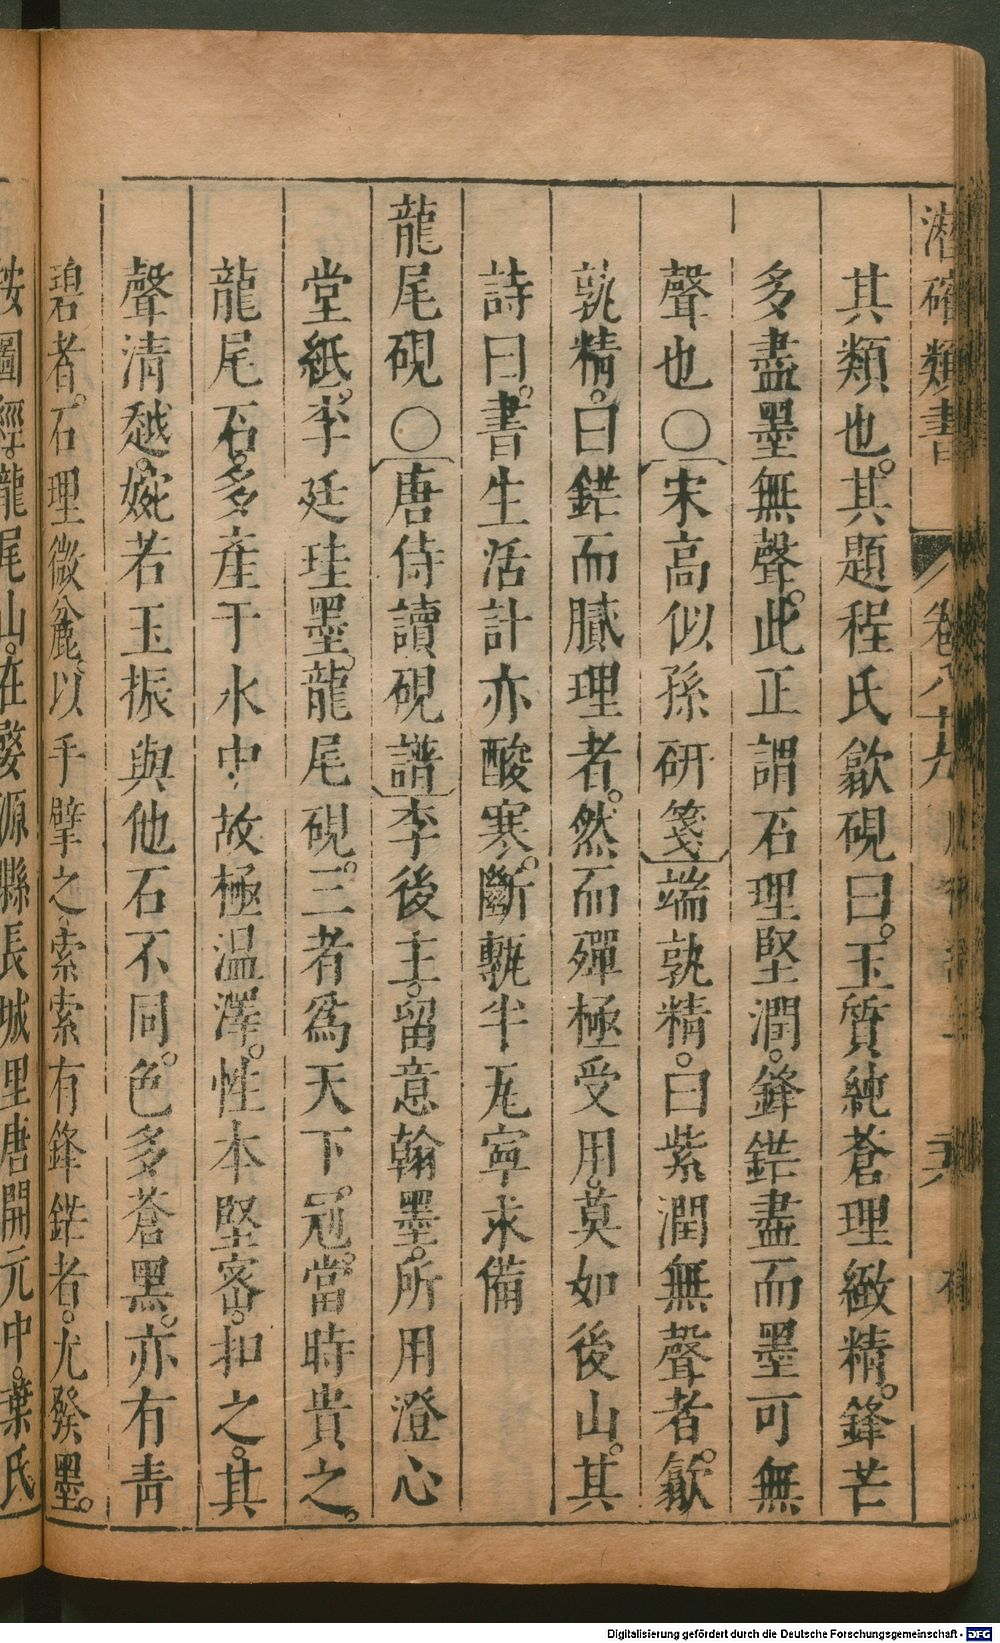 潛確類書 卷八十九
其類也。其題程氏歙硯曰。玉質純蒼理緻精。鋒芒
多盡墨無聲。此正謂石理堅潤。鋒鋩盡而墨可無
聲也〇宋高似孫硏箋端孰精。曰紫潤無聲者。歙
孰精。曰鋩而膩理者。然而殫極受用。莫如後山。其
詩曰。書生活計亦酸寒。斷甎半瓦寧求備
龍尾硯〇唐侍讀硯譜李後主。留意翰墨。所用澄心
堂紙。李廷珪墨。龍尾硯。三者爲天下冠。當時貴之。
龍尾石。多產于水中。故極温澤。性本堅密。扣之。其
聲清越。婉若玉振與他石不同。色多蒼黑。亦有青
碧者。石理微麄。以手擘之。索索有鋒鋩者。尤發墨。
按圖經。龍尾山。在婺源縣長城里唐開元中。葉氏
Digitalisierung gefördert durch die Deutsche Forschungsgemeinschaft - DFG